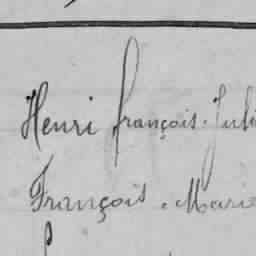 Henri françois. Juli
François. Marie